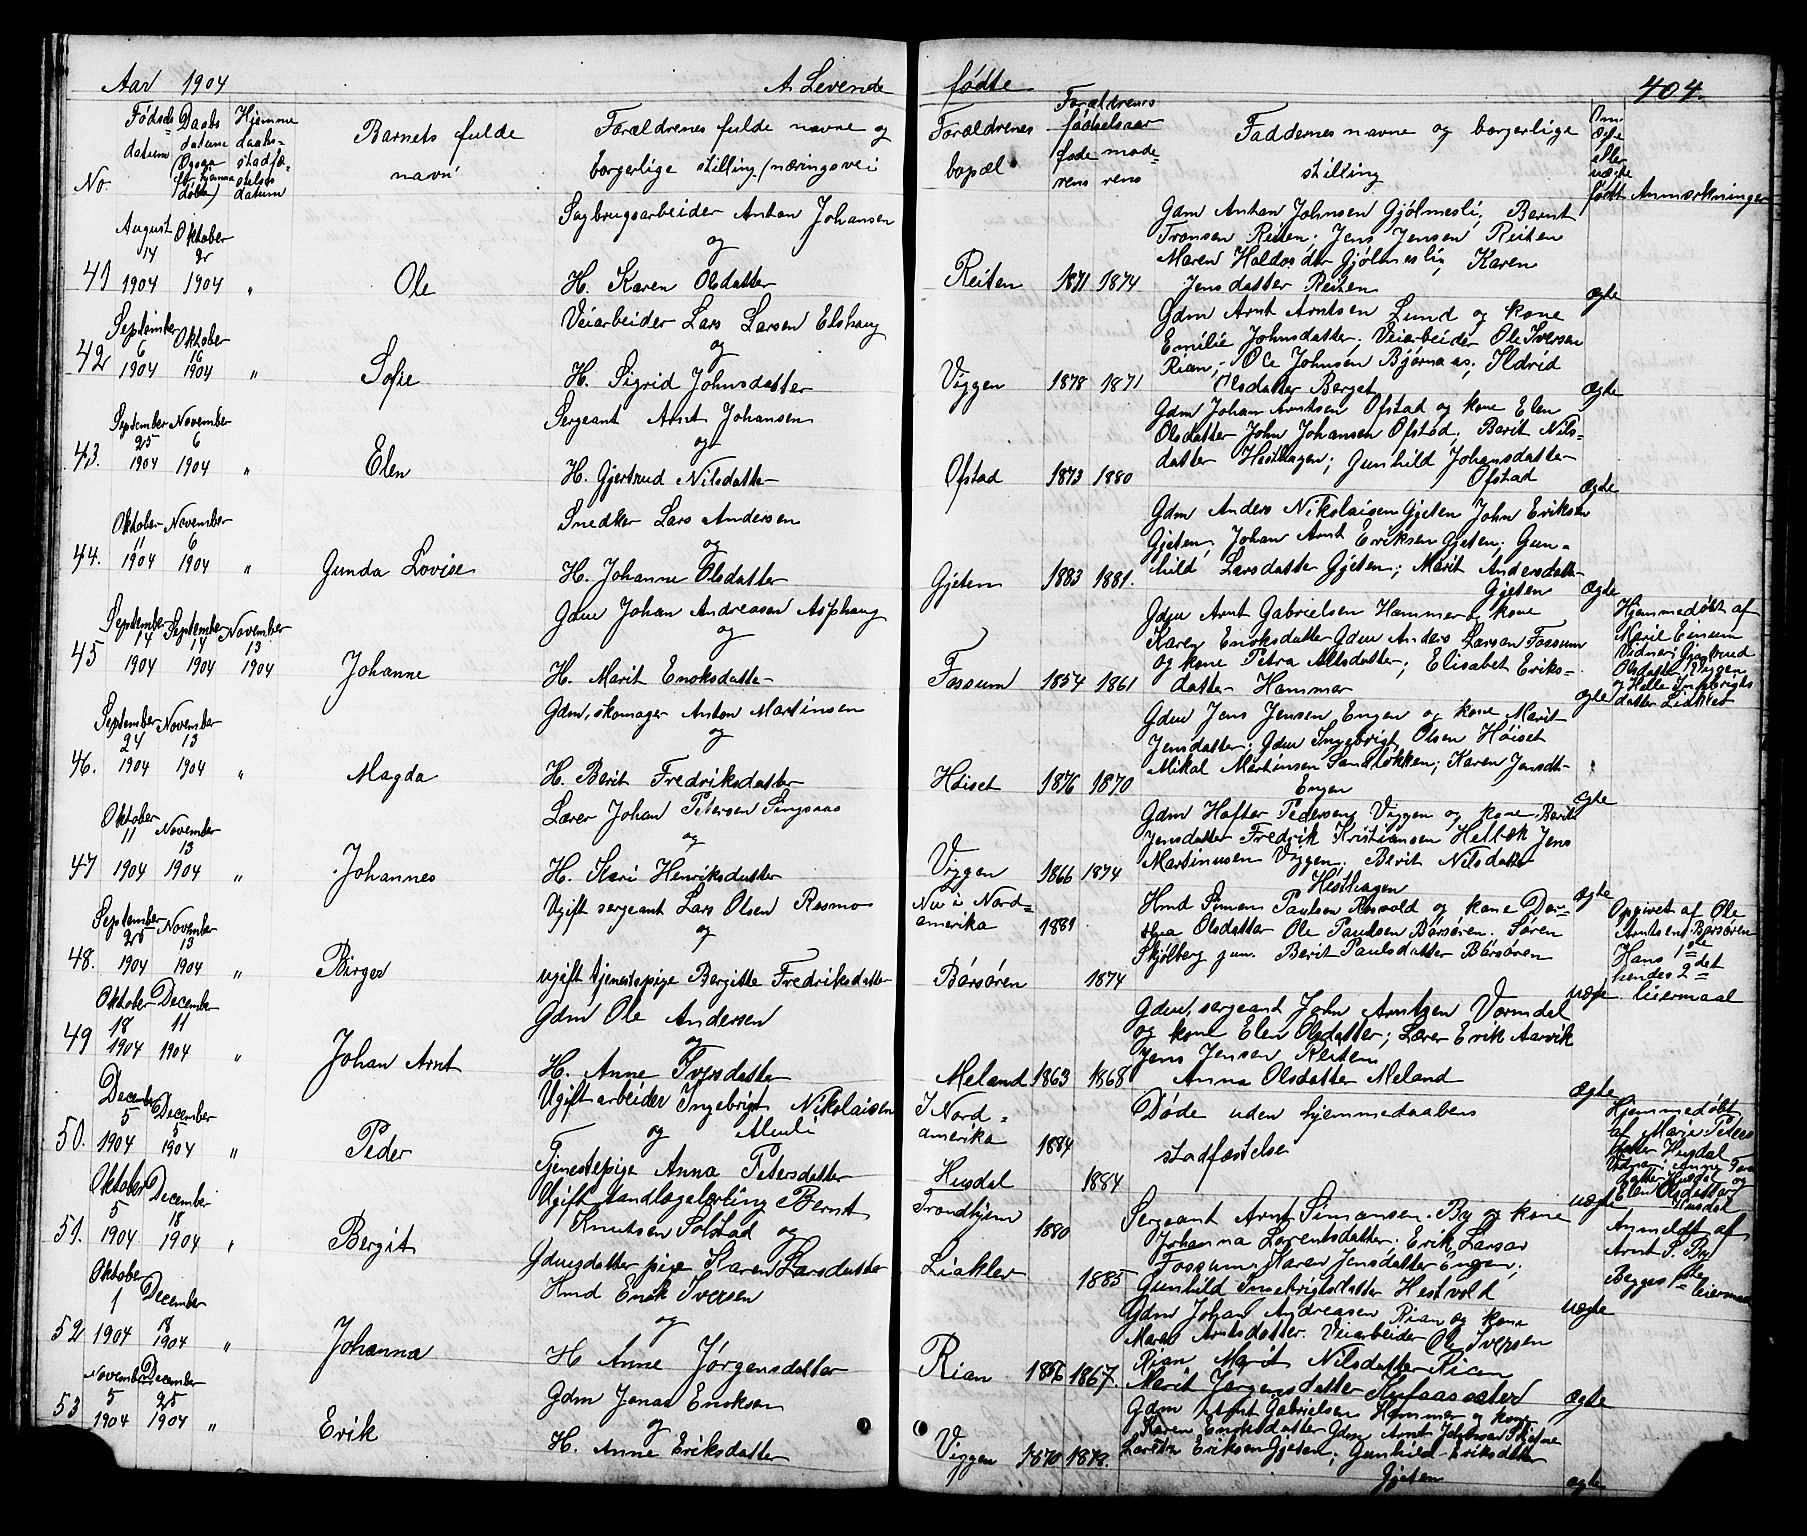 Aar 1904
A. Levende
fødte
404.
No.
Fødsels datum
Daabs datume
Hjemme daabs-stadfæstelses datum
Barnets fulde navn
Forældrenes fulde navne og borgerlige stilling (næringsvei
Forældrenes bopæl
Forældrenes fødselsaar
faderens
moderens
Faddernes navne og borgerlige stilling
Om ægte eller uægte født
Anmærkninger
41
August 14 1904
Oktober 2 1904
"
Ole
Sagbrugsarbeider Anton Johansen
og
H. Karen Olsdatter
Reiten
1871
1874
Gdm Anton Johnsen Gjølmesli, Bernt
Tronsen Reiten; Jens Jensen Reiten
Maren Haldosdtr Gjølmesli, Karen
Jensdatter Reiten
ægte
42
September 6 1904
Oktober 16 1904
"
Sofie
Veiarbeider Lars Larsen Elshaug
og
H. Sigrid Johnsdatter
Viggen
1878
1871
Gdm Arnt Arntsen Lund og kone
Emilie Johnsdatter; Veiarbeider Ole Iversen
Rian; Ole Johnsen Bjørnaas; Ildrid
Olsdatter Berget
Ægte
43.
September 25 1904
November 6 1904
"
Elen
Sergeant Arnt Johansen
og
H. Gjertrud Nilsdatter
Ofstad
1873
1880
Gdm Johan Arntsen Ofstad og kone Elen
Olsdatter John Johansen Ofstad; Berit Nils-
datter Hesthagen; Gunhild Johansdatter
Ofstad
ægte
44.
Oktober 11 1904
November 6 1904
"
Gunda Lovise
Snedker Lars Andersen
og
H. Johanne Olsdatter
Gjeten
1883
1881.
Gdm Anders Nikolaisen Gjeten John Eriksen
Gjeten, Johan Arnt Eriksen Gjeten; Gun-
hild Larsdatter Gjeten; Marit Andersdatter
Gjeten
Ægte
45
September 14 1904
September 14 1904
November 13 1904
Johanne
Gdm Johan Andreasen Asphaug
og
H. Marit Enoksdatter
Fossum
1854
1861
Gdm Arnt Gabrielsen Hammer & kone
Karen Enoksdatter Gdm Anders Larsen Fossum
og kone Petra Nilsdatter; Elisabet Eriks-
datter Hammer
ægte
Hjemmedøbt af
Marie Einum
Vidner: Gjertrud
Olsdatter
datter Liaklev
46.
September 24 1904
November 13 1904
"
Magda
Gdm, skomager Anton Martinsen
og
H. Berit Fredriksdatter
Høiset
1876
1870
Gdm Jens Jensen Engen og kone Marit
Jensdatter; Gdm Ingebrigt Olsen Høiset
Mikal Martinsen Sandløkken; Karen Jensdtr
Engen
ægte
47
Oktober 11 1904
November 13 1904
"
Johannes
Lærer Johan Petersen Singsaas
og
H. Kari Henriksdatter
Viggen
1866
1874
Gdm Hafter Pedersen Viggen og kone Berit
Jensdatter Fredrik Kristiansen Helbæk Jens
Martinusen Viggen. Berit Nilsdatter
Hesthagen
ægte
48.
September 25 1904
November 13 1904
"
Birger
Ugift sergeant Lars Olsen Rosmo
og
ugift tjenestepige Bergitte Fredriksdatter
Nu i Nord-
amerika
1881
Børsøren
1874
Hmd Simon Paulsen og kone Dor-
thea Olsdatter Ole Paulsen Børsøren. Søren
Skjølberg jun. Berit Paulsdatter Børsøren
uægte
Opgivet af Ole
Arntsen Børsøren
Hans 1ste
hendes 2det
leiermaal
49
Oktober 18 1904
December 11 1904
"
Johan Arnt
Gdm Ole Andersen
og
H. Anne Iversdatter
Meland
1863
1868
Gdm, sergeant John Arntzen Vormdal
og kone Elen Olsdatter; Lærer Erik Aarvik
Jens Jensen Reiten
Anna Olsdatter Meland
Ægte
50.
December 5 1904
December 5 1904
"
Peder
Ugift arbeider Ingebrigt Nikolaisen
og
Tjenestepige Anna Petersdatter
I Nord-
amerika
1884
Husdal
1884
Døde uden hjemmedaabens
stadfæstelse
uægte
Hjemmedøbt
af Marie Peters
datter Husdal
Vidner: Anne
Elen Olsdatter
Husdal
51.
Oktober 5 1904
December 18 1904
"
Bergit
Ugift Handlagelærling Bernt
Knutsen Solstad og
Gdmsdatter pige Karen Larsdatter
Trondhjem
1880
Liaklev
1885
Sergeant Arnt Simonsen By og kone
Johanna Lorentsdatter. Erik Larsen
Fossum. Karen Jensdatter Engen;
Gunhild Ingebrigtsdatter Hestvold
uægte
Anmeldt af
Arnt S. By
Begges 1ste
leiermaal
52
Oktober 1 1904
December 18 1904
"
Johanna
Hmd Enok Iversen
og
H Anne Jørgensdatter
Rian
1866
1867.
Gdm Johan Andreasen Rian og kone
Maren Arntsdatter. Veiarbeider Ole Iversen
Rian Marit Nilsdatter Rian
Marit Jørgensdatter
Ægte
53
November 5 1904
December 25 1904
"
Erik
Gdm Jonas Enoksen
og
H. Anne Eriksdatter
Viggen
1870
1878.
Gdm Arnt Gabrielsen Hammer og kone
Karen Enoksdatter Gdm Arnt
Eriksen Gjeten; Gunhild Eriksdatter
Gjeten
ægte